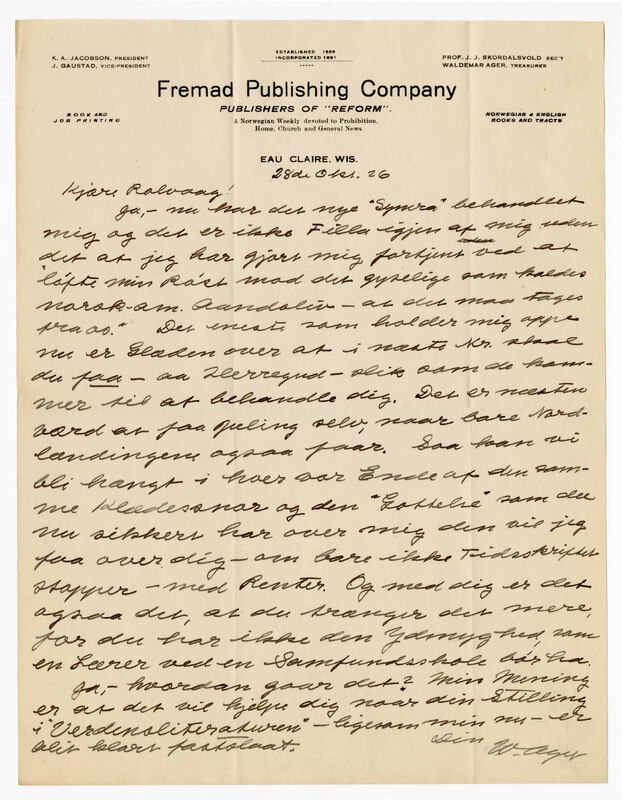 ESTABLISHED 1866
INCORPORATED 1891
K. A. JACOBSON, PRESIDENT
J. GAUSTAD, VICE-PRESIDENT
PROF. J. J. SKORDALSVOLD SEC'Y
WALDEMAR AGER, TREASURER
Fremad Publishing Company
PUBLISHERS OF "REFORM".
A Norwegian Weekly devoted to Prohibition,
Home, Church and General News
BOOK AND
JOB PRINTING
NORWEGIAN & ENGLISH
BOOKS AND TRACTS
EAU CLAIRE, WIS.
28de Okt. 26
Kjære Rølvaag!
Ja,- nu har det nye "Symra" behandlet
mig og det er ikke Filla igjen af mig uden
det at jeg har gjort mig fortjent ved at
"løfte min Røst mod det gyselige som kaldes
norsk-am. Aandsliv - at det maa tages
fra os." Det eneste som holder mig oppe
nu er Glæden over at i næste Nr. skal
du faa - aa Herregud - slik som de kom-
mer til at behandle dig. Det er næsten
værd at faa Juling selv, naar bare Nord-
lændingene ogsaa faar. Saa kan vi
bli hængt i hver vor Ende af den sam-
me Klædessnor og den "Gottelie" som du
nu sikkert har over mig den vil jeg
faa over dig - om bare ikke Tidsskriftet
stopper - med Renter. Og med dig er det
ogsaa det, at du trænger det mere,
for du har ikke den Ydmyghed, som
en Lærer ved en Samfundsskole bør ha.
Ja,- hvordan gaar det? Min Mening
er at det vil hjelpe dig naar din Stilling
i "Verdensliteraturen" - ligesom min nu - er
blit klart fastslaat.
Din
W. Ager